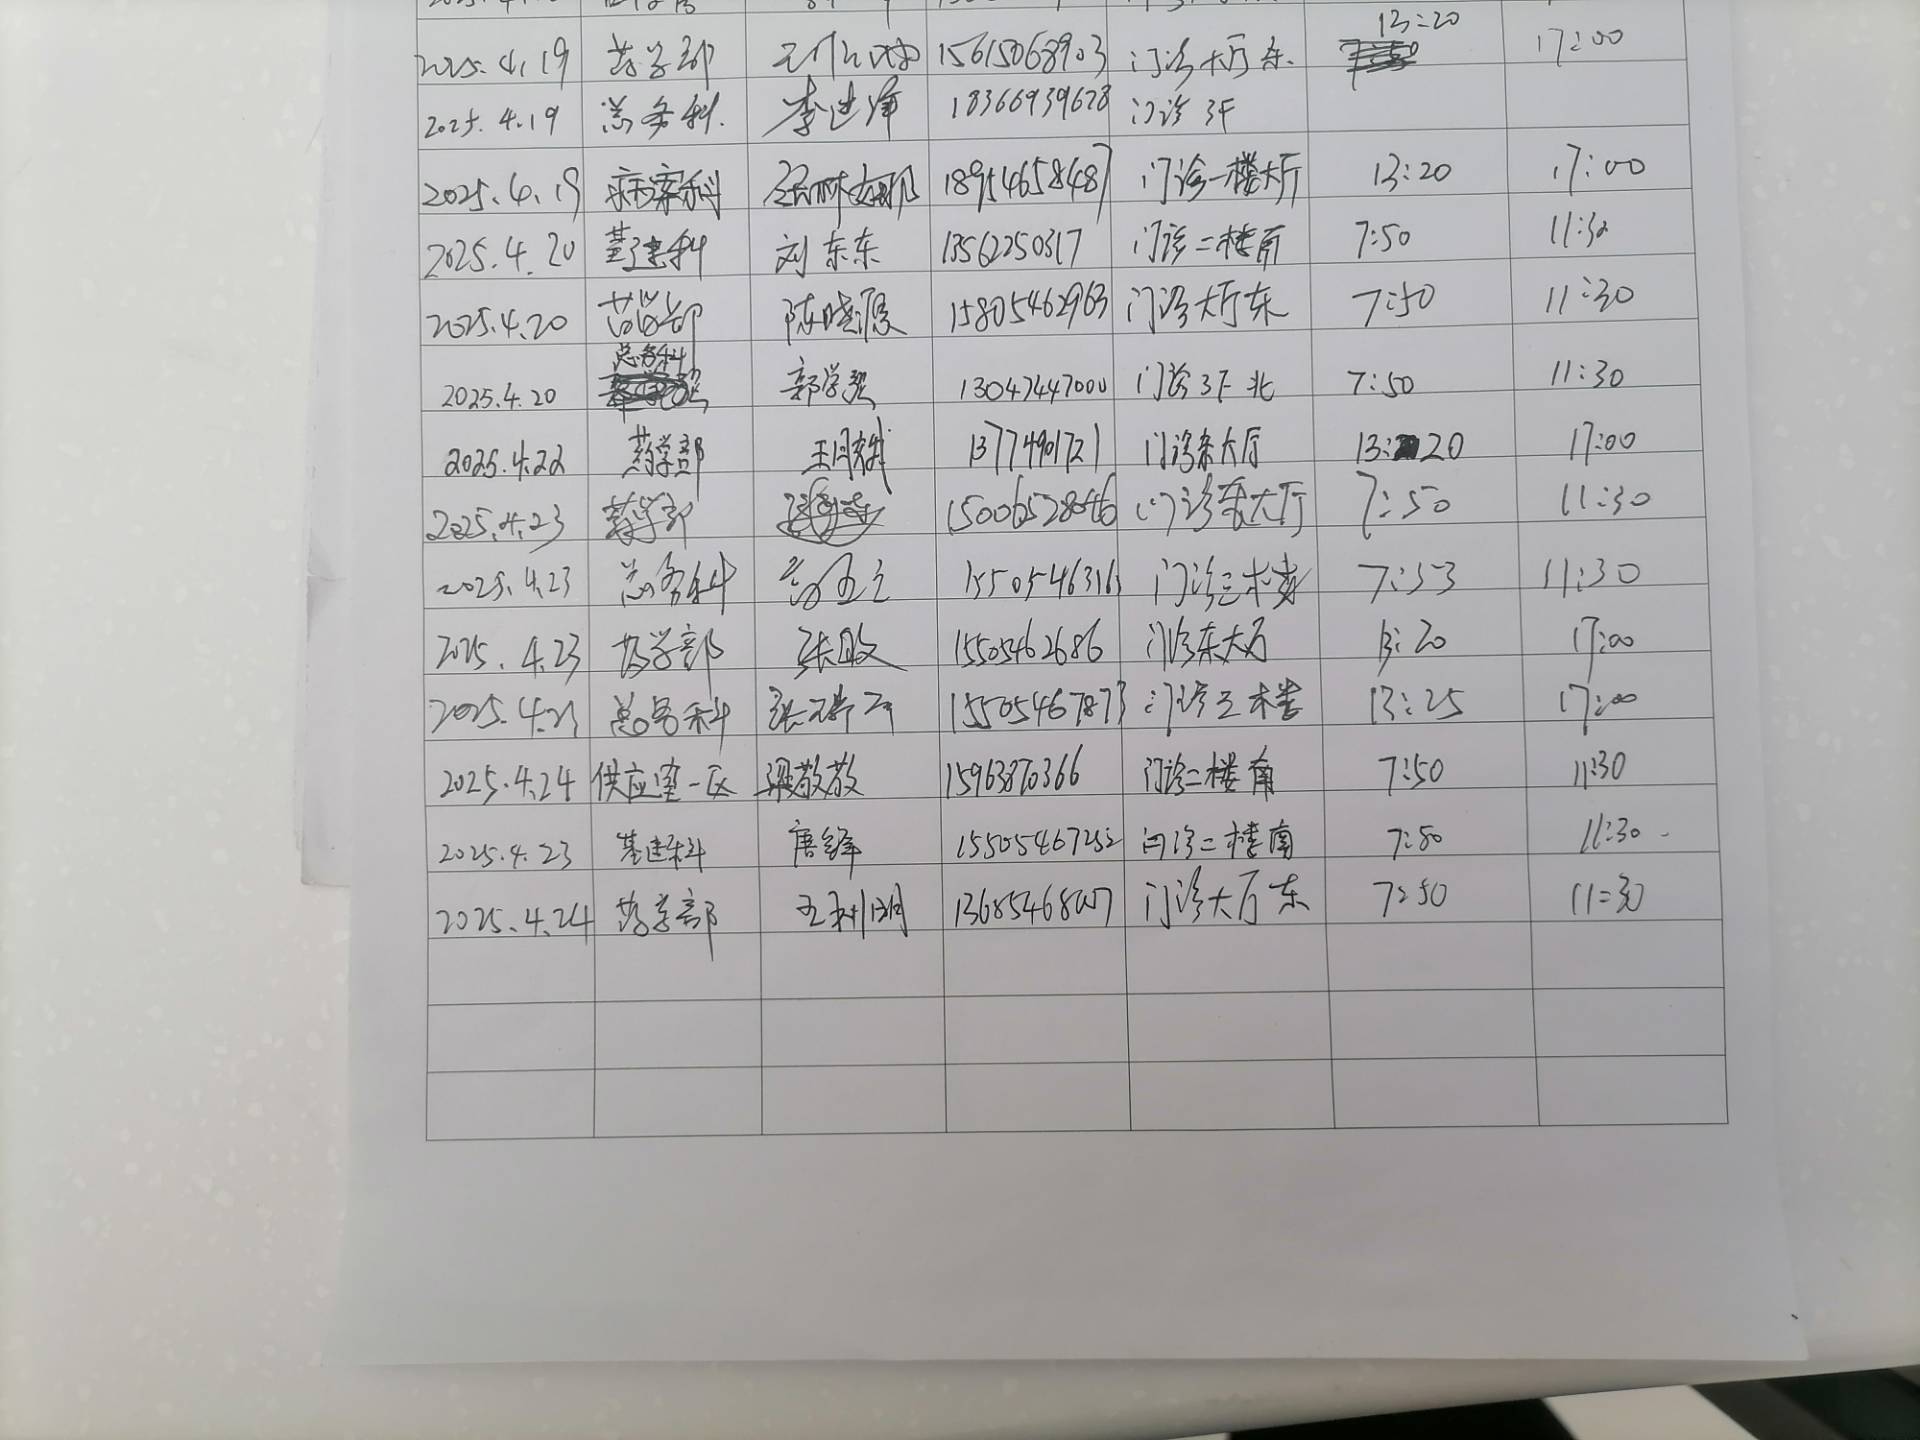 2025.4.19 药学部 15615068903 门诊大厅东 13:20 17:00
2025.4.19 总务科 李进泽 18366939678 门诊3F
2025.4.19 病案科 18954658487 门诊一楼大厅 13:20 17:00
2025.4.20 基建科 刘东东 13562250317 门诊二楼南 7:50 11:30
2025.4.20 药学部 陈晓霞 15805462963 门诊大厅东 7:50 11:30
2025.4.20 总务科 郭学强 13047447000 门诊3F北 7:50 11:30
2025.4.22 药学部 13774901721 门诊东大厅 13:20 17:00
2025.4.23 药学部 15006528046 门诊东大厅 7:50 11:30
2025.4.23 总务科 1550546316 门诊三楼 7:53 11:30
2025.4.23 药学部 张敏 15505462686 门诊东大厅 13:20 17:00
2025.4.23 总务科 15505467873 门诊三楼 13:25 17:00
2025.4.24 供应室一区 梁敬敬 15963870366 门诊二楼南 7:50 11:30
2025.4.23 基建科 唐锋 15505467252 门诊二楼南 7:50 11:30
2025.4.24 药学部 门诊大厅东 7:50 11:30